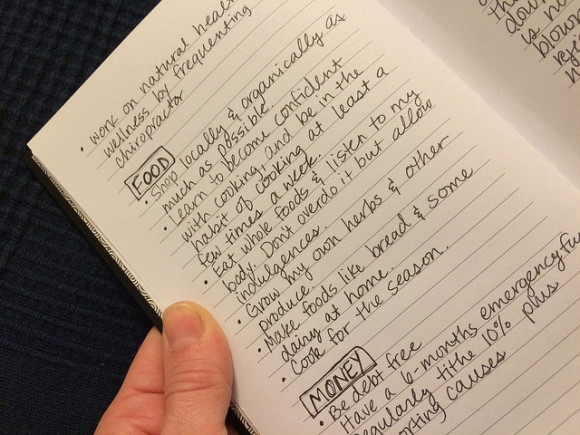 • work on natural heal
wellness by frequenting
chiropractor
FOOD
• Shop locally & organically as
much as possible.
• Learn to become confident
with cooking, and be in the
habit of cooking at least a
few times a week.
• Eat whole foods & listen to my
body. Don't overdo it but allow
indulgences.
• Grow my own herbs & other
produce.
• Make foods like bread & some
dairy at home.
• Cook for the season.
MONEY
• Be debt free
Have a 6-months emergency fu
egularly tithe 10% plus
orting causes
down
is no
blow